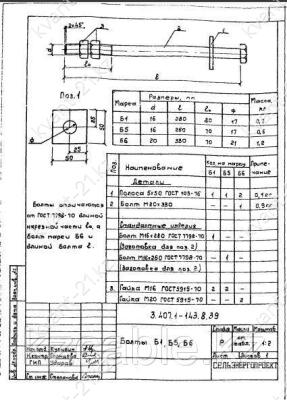 2×45°
3
2
1
d
l₀
l
Поз.1
φ
25
50
25
50
Марка
Размеры, мм
Масса, кг
d
l
l₀
φ
Б1 16 280 80 17 0,7
Б5 16 260 70 17 0,6
Б6 20 380 70 21 1,2
Поз.
Наименование
Кол. на марку
Примечание
Б1 Б5 Б6
Детали
1 Полоса 5х50 ГОСТ 103-76 1 1 2 0,1 кг
2 Болт М20×380 - - 1 0,9 кг
Стандартные изделия
Болт М16×280 ГОСТ 7798-70 1 - -
(Заготовка для поз. 2)
Болт М16×260 ГОСТ 7798-70 - 1 -
(Заготовка для поз. 2)
3 Гайка М16 ГОСТ 5915-70 2 2 -
Гайка М20 ГОСТ 5915-70 - - 2
Болты отличаются
от ГОСТ 7798-70 длиной
нарезной части l₀, а
болт марки Б6 и
длиной болта l.
3.407.1-143.8.39
Болты Б1, Б5, Б6
Стадия Масса Масштаб
Р
табл.
1:2
Лист Листов 1
СЕЛЬЭНЕРГОПРОЕКТ
Н.контр.
ГИП